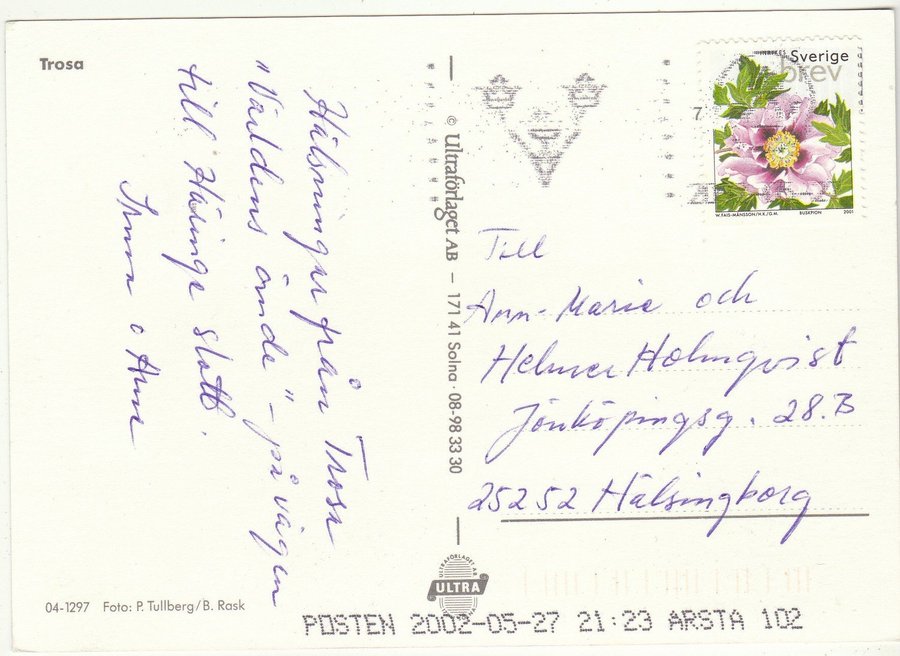 Trosa
Hälsningar från Trosa
"Världens ände" – på vägen
till Häringe slott.
o Ann
© Ultraförlaget AB – 171 41 Solna · 08-98 33 30
INRIKES Sverige
brev
7
W. FAIS-MÅNSSON/H.K./G.M. BUSKPION 2001
Till
Ann-Marie och
Helmer Holmqvist
Jönköpingsg. 28.B
25252 Hälsingborg
ULTRAFÖRLAGET AB
ULTRA
04-1297 Foto: P. Tullberg/B. Rask
POSTEN 2002-05-27 21:23 ARSTA 102